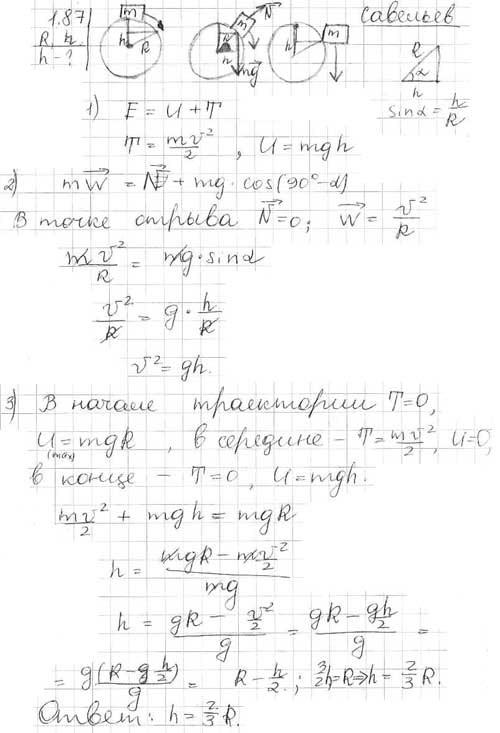 1.87 Савельев
R, h.
h - ?
m h R
m N R h mg
h m
R α h
sinα = h/R
1) E = U + T
T = mv²/2 , U = mgh
2) mW = N + mg·cos(90°-α)
В точке отрыва N=0; W = v²/R
mv²/R = mg·sinα
v²/R = g·h/R
v² = gh.
3) В начале траектории T=0,
U(max) = mgR , в середине – T = mv²/2, U=0,
в конце – T=0, U=mgh.
mv²/2 + mgh = mgR
h = (mgR - mv²/2)/mg
h = (gR - v²/2)/g = (gR - gh/2)/g =
= g(R - g h/2)/g = R - h/2.; 3/2h=R⇒h = 2/3 R.
Ответ: h = 2/3 R.